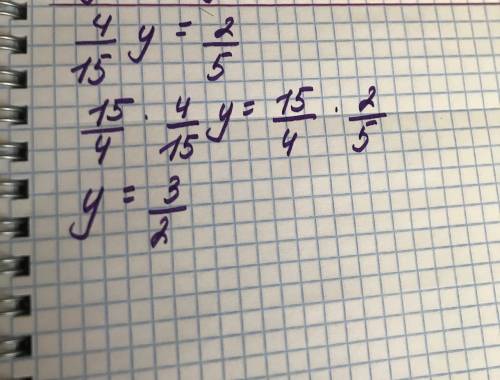 4/15 y = 2/5
15/4 · 4/15 y = 15/4 · 2/5
y = 3/2